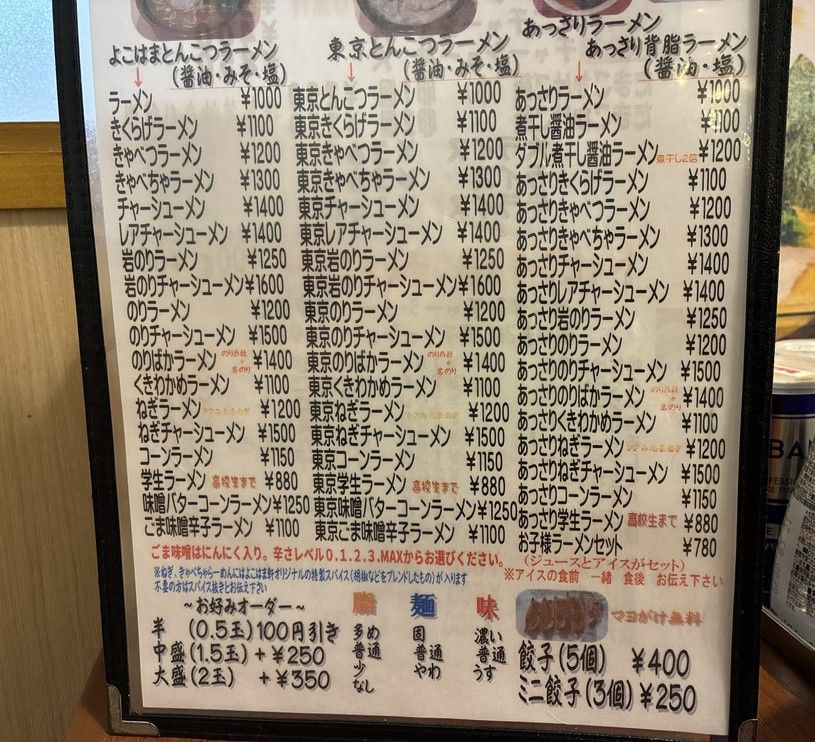 よこはまとんこつラーメン
(醤油・みそ・塩)
ラーメン ¥1000
きくらげラーメン ¥1100
きゃべつラーメン ¥1200
きゃべちゃラーメン ¥1300
チャーシューメン ¥1400
レアチャーシューメン ¥1400
岩のりラーメン ¥1250
岩のりチャーシューメン ¥1600
のりラーメン ¥1200
のりチャーシューメン ¥1500
のりばかラーメン のり8枚+岩のり ¥1400
くきわかめラーメン ¥1100
ねぎラーメン ¥1200
ねぎチャーシューメン ¥1500
コーンラーメン ¥1150
学生ラーメン 高校生まで ¥880
味噌バターコーンラーメン ¥1250
ごま味噌辛子ラーメン ¥1100
東京とんこつラーメン
(醤油・みそ・塩)
東京とんこつラーメン ¥1000
東京きくらげラーメン ¥1100
東京きゃべつラーメン ¥1200
東京きゃべちゃラーメン ¥1300
東京チャーシューメン ¥1400
東京レアチャーシューメン ¥1400
東京岩のりラーメン ¥1250
東京岩のりチャーシューメン ¥1600
東京のりラーメン ¥1200
東京のりチャーシューメン ¥1500
東京のりばかラーメン のり8枚+岩のり ¥1400
東京くきわかめラーメン ¥1100
東京ねぎラーメン ¥1200
東京ねぎチャーシューメン ¥1500
東京コーンラーメン ¥1150
東京学生ラーメン 高校生まで ¥880
東京味噌バターコーンラーメン ¥1250
東京ごま味噌辛子ラーメン ¥1100
あっさりラーメン
あっさり背脂ラーメン
(醤油・塩)
あっさりラーメン ¥1000
煮干し醤油ラーメン ¥1100
ダブル煮干し醤油ラーメン 煮干し2倍 ¥1200
あっさりきくらげラーメン ¥1100
あっさりきゃべつラーメン ¥1200
あっさりきゃべちゃラーメン ¥1300
あっさりチャーシューメン ¥1400
あっさりレアチャーシューメン ¥1400
あっさり岩のりラーメン ¥1250
あっさりのりラーメン ¥1200
あっさりのりチャーシューメン ¥1500
あっさりのりばかラーメン のり8枚+岩のり ¥1400
あっさりくきわかめラーメン ¥1100
あっさりねぎラーメン ¥1200
あっさりねぎチャーシューメン ¥1500
あっさりコーンラーメン ¥1150
あっさり学生ラーメン 高校生まで ¥880
お子様ラーメンセット ¥780
(ジュースとアイスがセット)
※アイスの食前 一緒 食後 お伝え下さい
ごま味噌はにんにく入り。辛さレベル0.1.2.3.MAXからお選びください。
※ねぎ、きゃべちゃらーめんにはよこはま軒オリジナルの特製スパイス(胡椒などをブレンドしたもの)が入ります
不要の方はスパイス抜きとお伝え下さい
~お好みオーダー~
半 (0.5玉)100円引き
中盛(1.5玉) +¥250
大盛(2玉) +¥350
脂
多め
普通
少し
なし
麺
固
普通
やわ
味
濃い
普通
うす
マヨがけ無料
餃子(5個) ¥400
ミニ餃子(3個)¥250